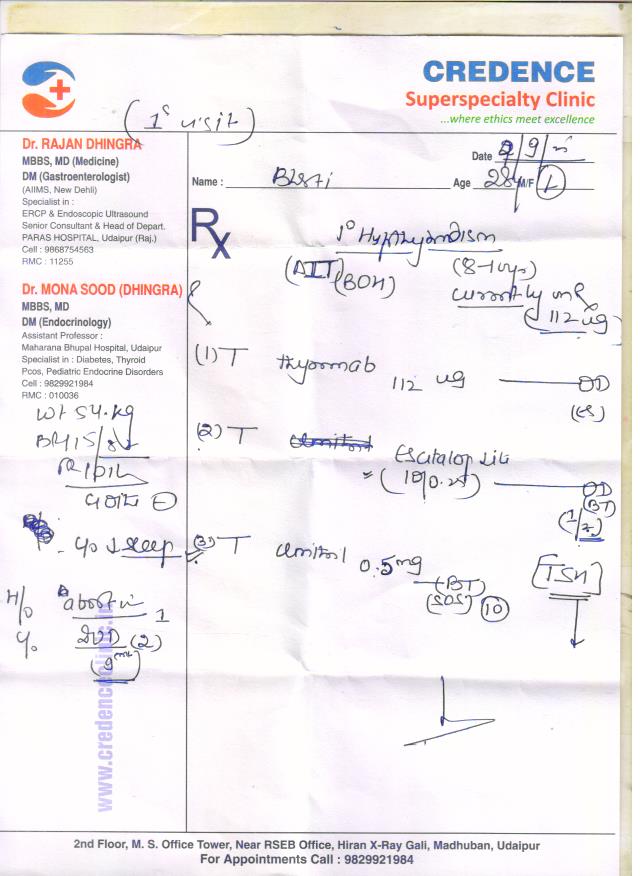 CREDENCE
Superspecialty Clinic
...where ethics meet excellence
(1° visit)
Dr. RAJAN DHINGRA
MBBS, MD (Medicine)
DM (Gastroenterologist)
(AIIMS, New Dehli)
Specialist in :
ERCP & Endoscopic Ultrasound
Senior Consultant & Head of Depart.
PARAS HOSPITAL, Udaipur (Raj.)
Cell : 9868754563
RMC : 11255
Dr. MONA SOOD (DHINGRA)
MBBS, MD
DM (Endocrinology)
Assistant Professor :
Maharana Bhupal Hospital, Udaipur
Specialist in : Diabetes, Thyroid
Pcos, Pediatric Endocrine Disorders
Cell : 9829921984
RMC : 010036
Wt 54.kg
c/o ↓ sleep
H/o abortion 1
(2)
Date 2/9/
Name : Age 28y M/F
Rx
1° Hypothyroidism
(AIT) (BOH) (8-10yrs)
currently on
112 ug
(1) T thyronorm 112 ug OD
(ES)
(2) T Escitalop
(10/0.25) OD
(BT)
(3) T 0.5mg
(BT)
(SOS) (10)
[TSH]
www.credenceclinic.in
2nd Floor, M. S. Office Tower, Near RSEB Office, Hiran X-Ray Gali, Madhuban, Udaipur
For Appointments Call : 9829921984